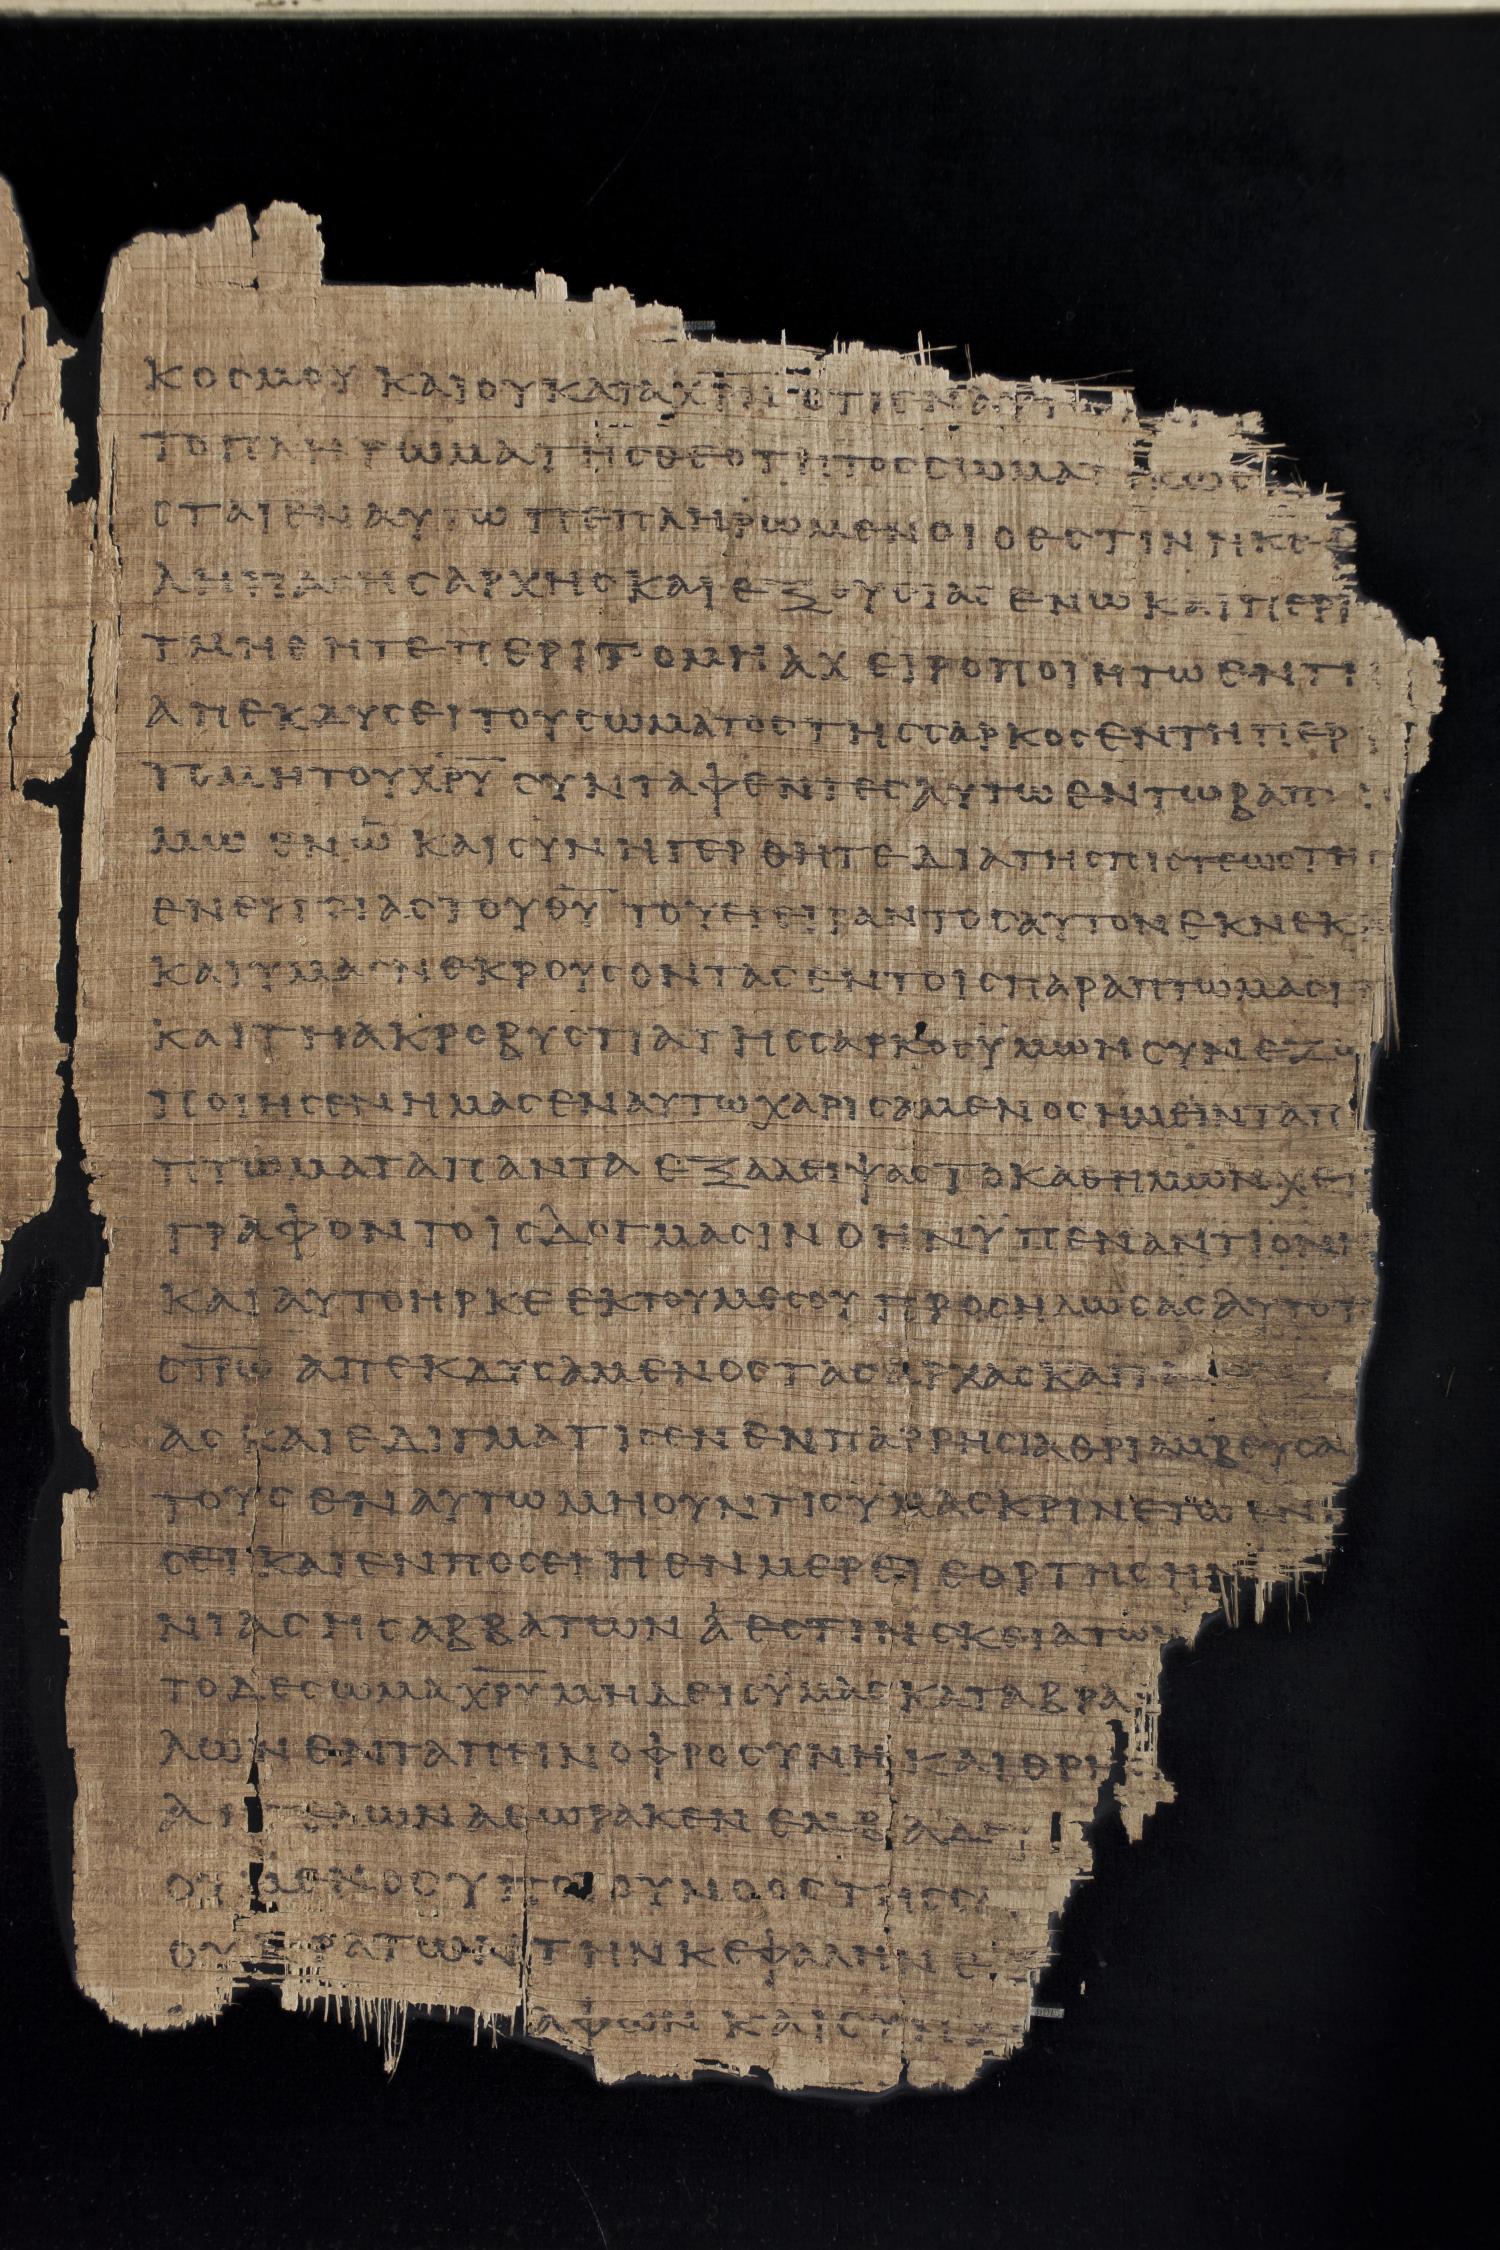 κοσμου και ου κατα χρν οτι εν αυτω
το πληρωμα της θεοτητος σωματικως
σται εν αυτω πεπληρωμενοι ο εστιν η κεφ
λη πασης αρχης και εξουσιας εν ω και περι
τμηθητε περιτομη αχειροποιητω εν τη
απεκδυσει του σωματος της σαρκος εν τη περ
ιτομη του χρυ συνταφεντες αυτω εν τω βαπ
μω εν ω και συνηγερθητε δια της πιστεως τη
ενεργειας του θυ του εγειραντος αυτον εκ νεκ
και υμας νεκρους οντας εν τοις παραπτωμασι
και τη ακροβυστια της σαρκος ϋμων συνεζω
ποιησεν ημας εν αυτω χαρισαμενος ημειν τα π
πτωματα παντα εξαλειψας το καθ ημων χει
γραφον τοις δογμασιν ο ην ϋπεναντιον η
και αυτο ηρκε εκ του μεσου προσηλωσας αυτο τ
στρω απεκδυσαμενος τας αρχας και
ας και εδιγματισεν εν παρρησια θριαμβευσα
τους εν αυτω μη ουν τις υμας κρινετω εν
σει και εν ποσει η εν μερει εορτης η ν
νιας η σαββατων α εστιν σκεια των
το δε σωμα χρυ μηδεις ϋμας καταβρα
λων εν ταπεινοφροσυνη και θρη
αγγελων α εωρακεν ενβα
του νοος της σα
ου κρατων την κεφαλην εξ
αφων και συν